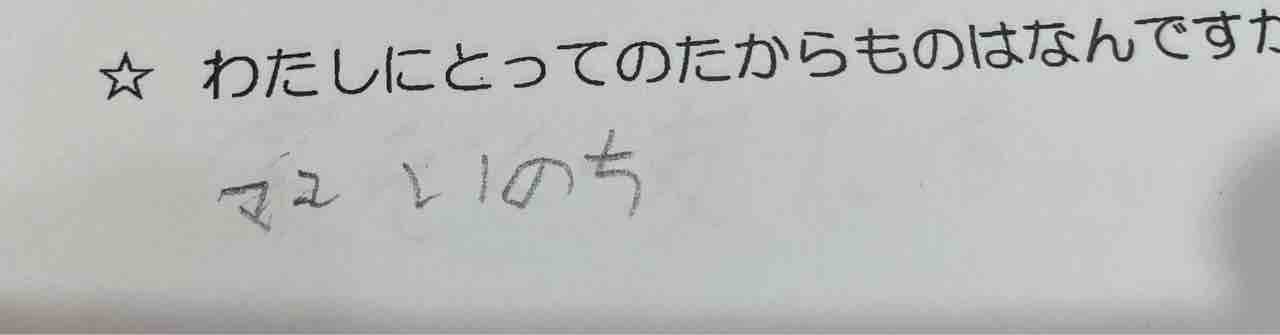 ☆ わたしにとってのたからものはなんですか
ママ いのち